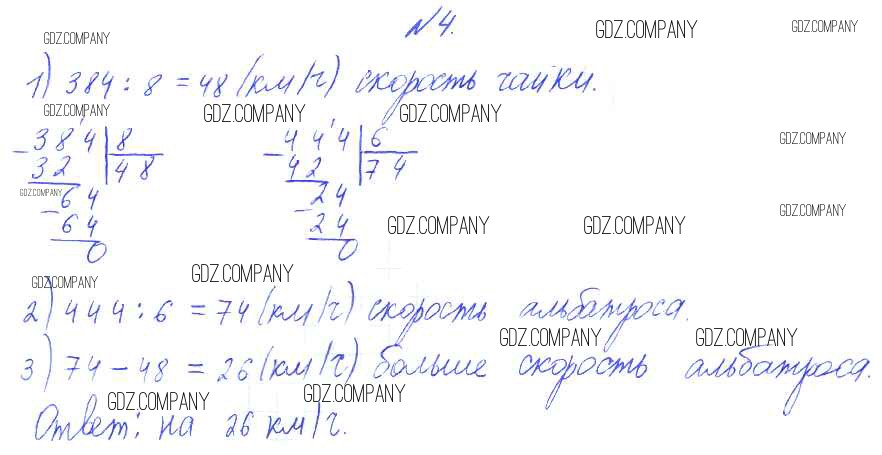 №4.
GDZ.COMPANY GDZ.COMPANY GDZ.COMPANY
1) 384 : 8 = 48 (км/ч) скорость чайки.
GDZ.COMPANY GDZ.COMPANY GDZ.COMPANY
384 8 444 6 GDZ.COMPANY
32 48 42 74
GDZ.COMPANY 64 24
64 24 GDZ.COMPANY GDZ.COMPANY GDZ.COMPANY
0 0
GDZ.COMPANY GDZ.COMPANY
2) 444 : 6 = 74 (км/ч) скорость альбатроса.
GDZ.COMPANY GDZ.COMPANY
3) 74 - 48 = 26 (км/ч) больше скорость альбатроса.
GDZ.COMPANY GDZ.COMPANY
Ответ: на 26 км/ч.